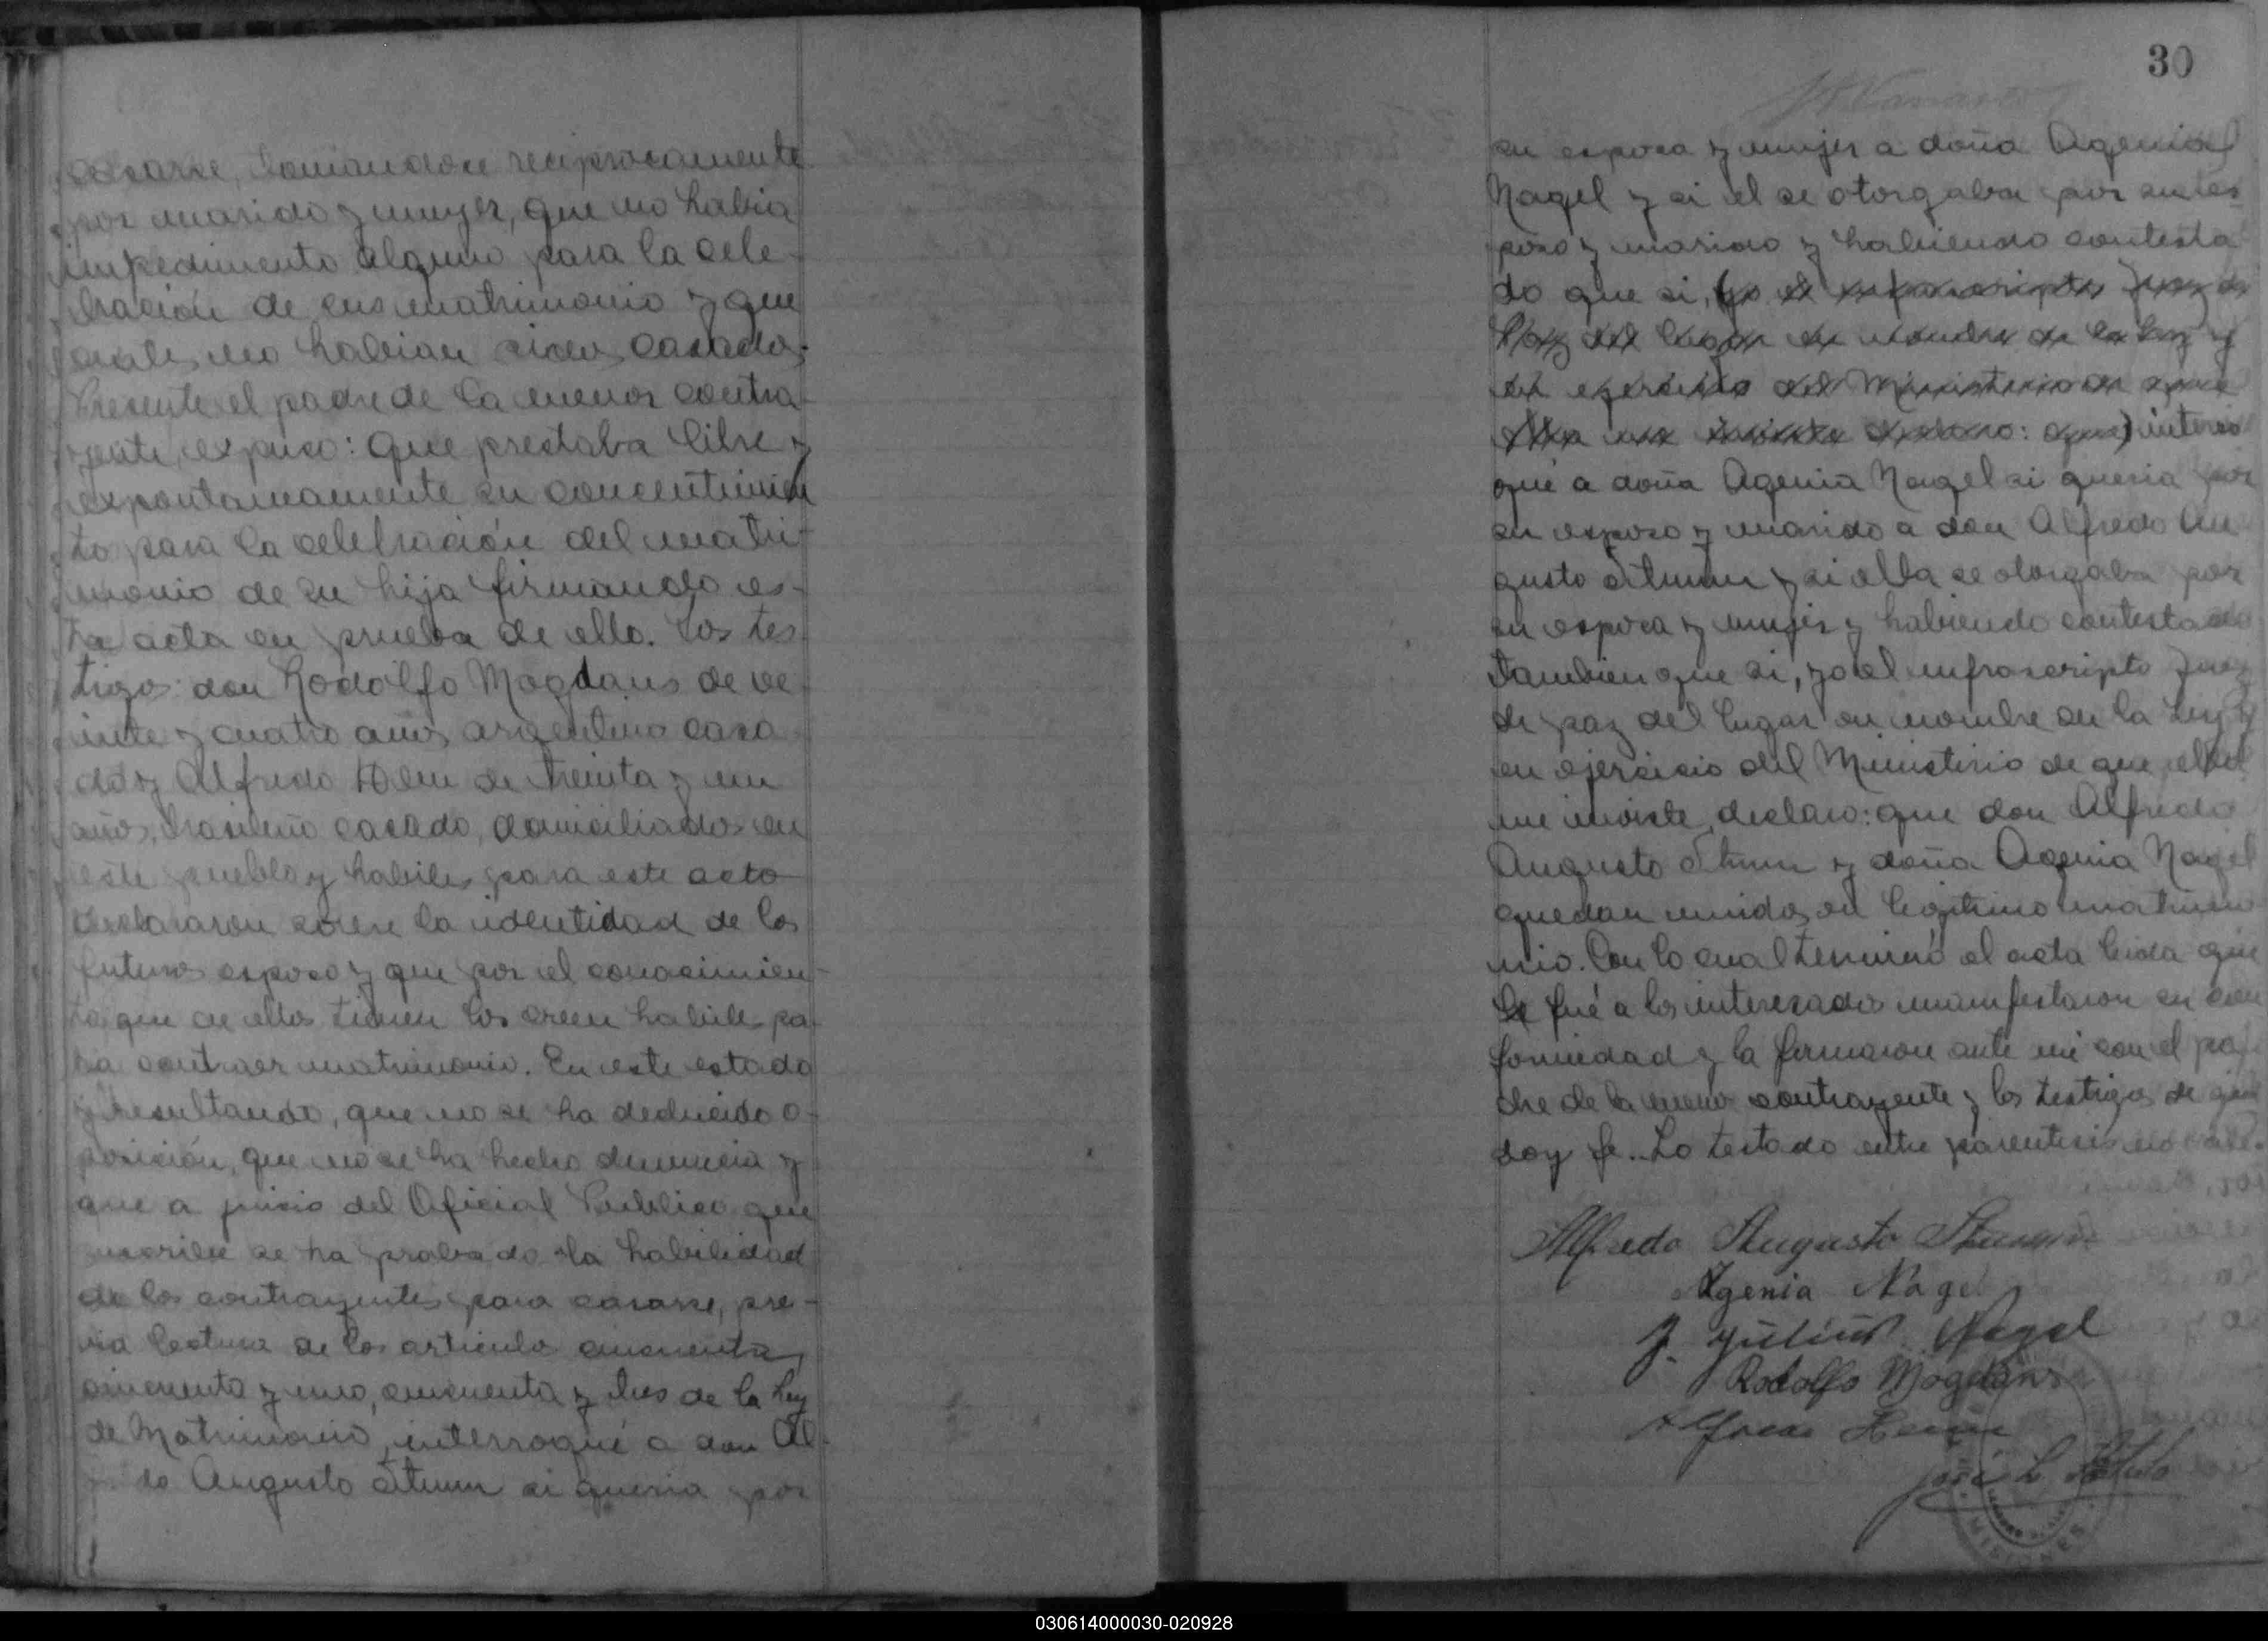 casarse, tomandose reciprocamente
por marido y mujer, que no habia
impedimento alguno para la cele-
bración de sus matrimonio y que
antes no habian sido casados.
Presente el padre de la menor contra-
yente, expuso: que prestaba libre y
expontaneamente su concentimien
to para la celebración del matri-
monio de su hija firmando es-
ta acta en prueba de ello. Los tes
tigos: don Rodolfo Mogdans de ve
inte y cuatro años argentino casa
do y Alfredo de treinta y un
años, brasileño casado, domiciliados en
este pueblo y habiles para este acto
declararon sobre la identidad de los
futuros esposos y que por el conocimien-
to que de ellos tienen los creen habiles pa-
ra contraer matrimonio. En este estado
y resultando, que no se ha deducido o-
posición, que no se ha hecho denuncia y
que a juicio del Oficial Publico que
suscribe se ha probado la habilidad
de los contrayentes para casarse, pre-
via lectura de los articulos cincuenta,
cincuenta y uno, cincuenta y tres de la Ley
de Matrimonio, interrogué a don Al-
do Augusto Sturm si queria por
30
su esposa y mujer a doña Agenia
Nagel y si el se otorgaba por su es
poso y marido y habiendo contesta
do que si, (yo el infrascripto Juez de
Paz del lugar en nombre de la Ley y
en ejercicio del Ministerio de que
ella me inviste declaro: que) interro
gué a doña Agenia Nagel si queria por
su esposo y marido a don Alfredo Au
gusto Sturm y si ella se otorgaba por
su esposa y mujer y habiendo contestado
tambien que si, yo el infrascripto Juez
de paz del lugar en nombre de la Ley y
en ejercicio del Ministerio de que ella
me inviste, declaro: que don Alfredo
Augusto Sturm y doña Agenia Nagel
quedan unidos en legitimo matrimo
nio. Con lo cual terminó el acta leida que
le fué a los interesados manifestaron su con
formidad y la firmaron ante mi con el pa
dre de la menor contrayente y los testigos de que
doy fe. Lo testado entre parentesis no vale.
Alfredo Augusto Sturm
Agenia Nagel
J. Julius Nagel
Rodolfo Mogdans
Alfredo
José L.
MISIONES
030614000030-020928